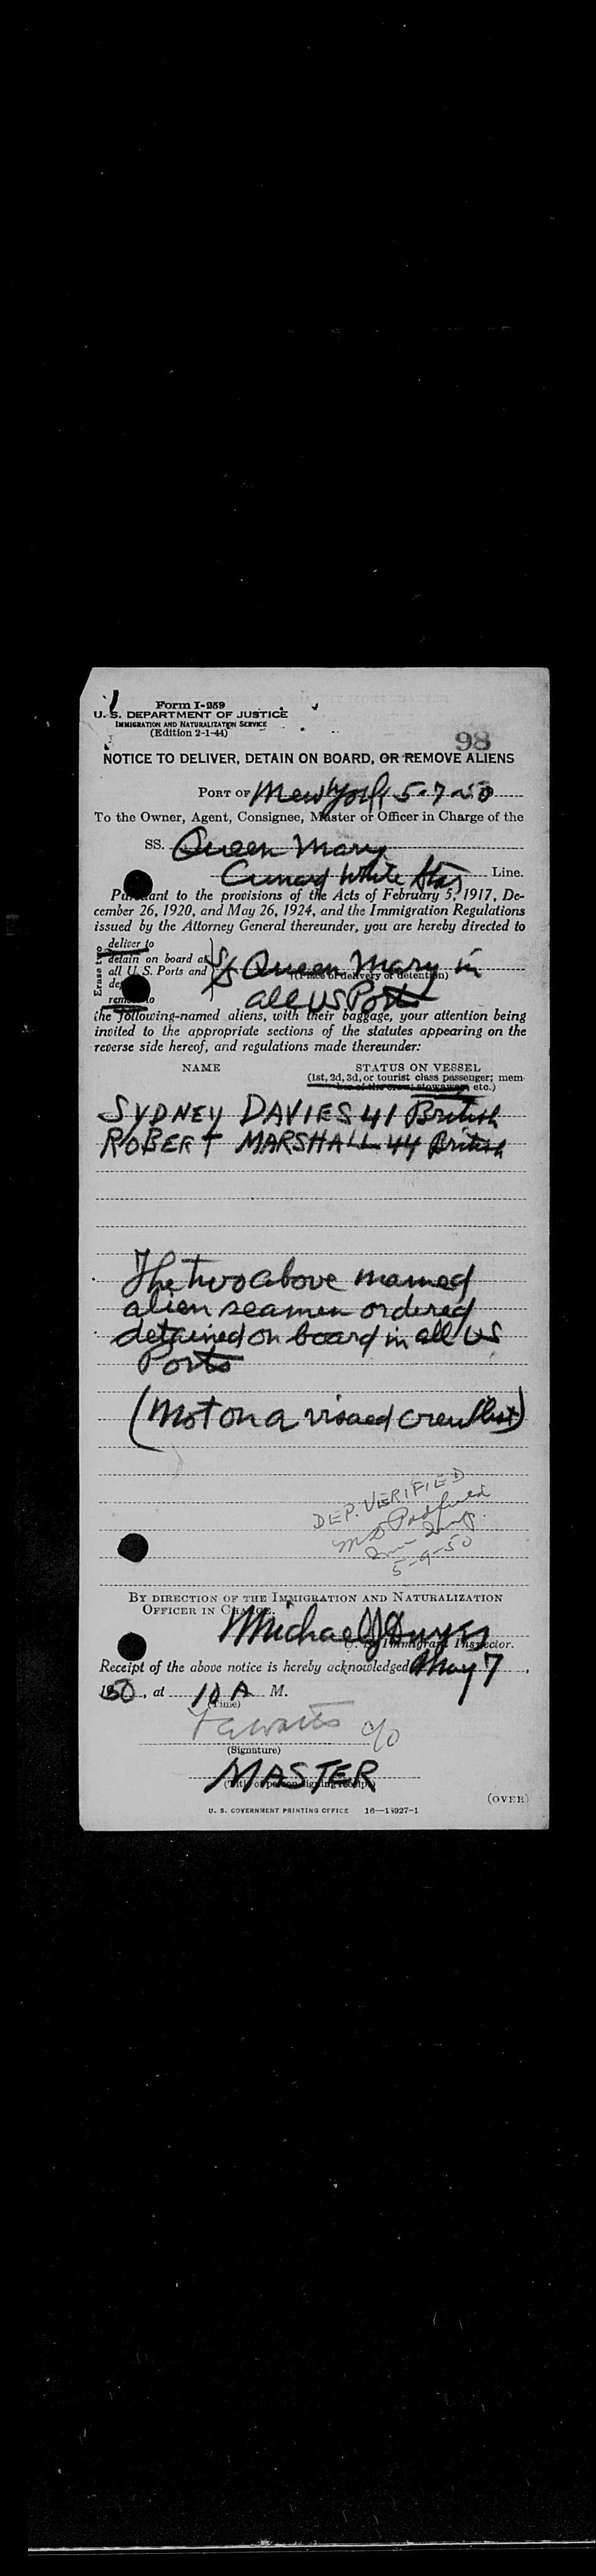 Form I-259
U. S. DEPARTMENT OF JUSTICE
IMMIGRATION AND NATURALIZATION SERVICE
(Edition 2-1-44)
98
NOTICE TO DELIVER, DETAIN ON BOARD, OR REMOVE ALIENS
PORT OF New York 5-7-50
To the Owner, Agent, Consignee, Master or Officer in Charge of the
SS. Queen Mary
Cunard White Star Line.
Pursuant to the provisions of the Acts of February 5, 1917, De-
cember 26, 1920, and May 26, 1924, and the Immigration Regulations
issued by the Attorney General thereunder, you are hereby directed to
Erase two
deliver to
detain on board at
all U. S. Ports and
remove to
S/S Queen Mary in
(Place of delivery or detention)
all US Ports
the following-named aliens, with their baggage, your attention being
invited to the appropriate sections of the statutes appearing on the
reverse side hereof, and regulations made thereunder:
NAME
STATUS ON VESSEL
(1st, 2d, 3d, or tourist class passenger; mem-
ber of the crew; stowaway, etc.)
SYDNEY DAVIES 41 British
ROBERT MARSHALL 44 British
The two above named
alien seamen ordered
detained on board in all US
Ports
(Not on a visaed crew list)
DEP. VERIFIED
5-9-50
BY DIRECTION OF THE IMMIGRATION AND NATURALIZATION
OFFICER IN CHARGE.
Michael J
Immigrant Inspector.
Receipt of the above notice is hereby acknowledged May 7,
1950, at 10 A M.
(Time)
(Signature)
MASTER
(Title of person signing receipt)
(OVER)
U. S. GOVERNMENT PRINTING OFFICE 16—13927-1